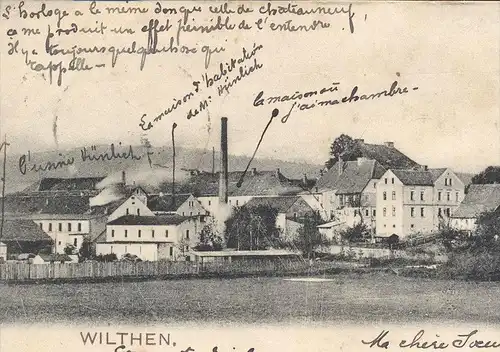 L'horloge a le même don que celle de chateauneuf,
ça me produit un effet pénible de l'entendre.
Il y a toujours quelque chose qui
rappelle –
La maison d'habitation
de Mr Hünlich
la maison où
j'ai ma chambre –
L'usine Hünlich
WILTHEN.
Ma chère Sœu